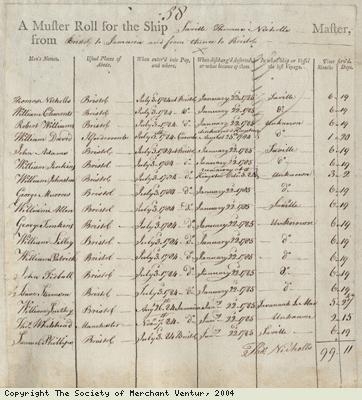 58
A Muster Roll for the Ship Saville Thomas Nicholls Master,
from Bristol to Jamaica and from thence to Bristol
Men's Names. Usual Places of Abode. When enter'd into Pay, and where. When discharg'd, deserted, or what become of them. In what Ship or Vessel the last Voyage. Time serv'd. Months Days.
Thomas Nicholls Bristol July 3. 1784 Bristol January 22. 1785 Saville 6 - 19
William Bristol July 3. 1784 Do. January 22. 1785 Do. 6 - 19
Robert Williams Bristol July 3. 1784 Do. January 22. 1785 Unknown 6 - 19
William Davis July 3. 1784 Do. - 20
John Adams Bristol July 3. 1784 Bristol January 22. 1785 Saville 6 - 19
William Jenkins Bristol July 3. 1784 Do. January 22. 1785 Do. 6 - 19
William Johnston Bristol July 3. 1784 Do. Kingston Unknown 3 - 2
George Bristol July 3. 1784 Do. January 22. 1785 Do. 6 - 19
William Allen Bristol July 3. 1784 Do. January 22. 1785 Saville 6 - 19
George Jenkins Bristol July 3. 1784 Do. January 22. 1785 Unknown 6 - 19
William Bristol July 3. 1784 Do. January 22. 1785 Do. 6 - 19
William Bristol July 3. 1784 Do. January 22. 1785 Do. 6 - 19
John Bristol July 3. 1784 Do. January 22. 1785 Do. 6 - 19
Bristol July 3. 1784 Do. January 22. 1785 Do. 6 - 19
William Bristol 24 Jamaica 22. 1785 3 - 27
Whitehead Manchester 24 Do. 22. 1785 Unknown 2 - 15
Samuel Phillips Bristol July 3. 84 Bristol 22. 1785 Saville 6 - 19
Thos. Nicholls 99 11
Copyright The Society of Merchant Ventur, 2004